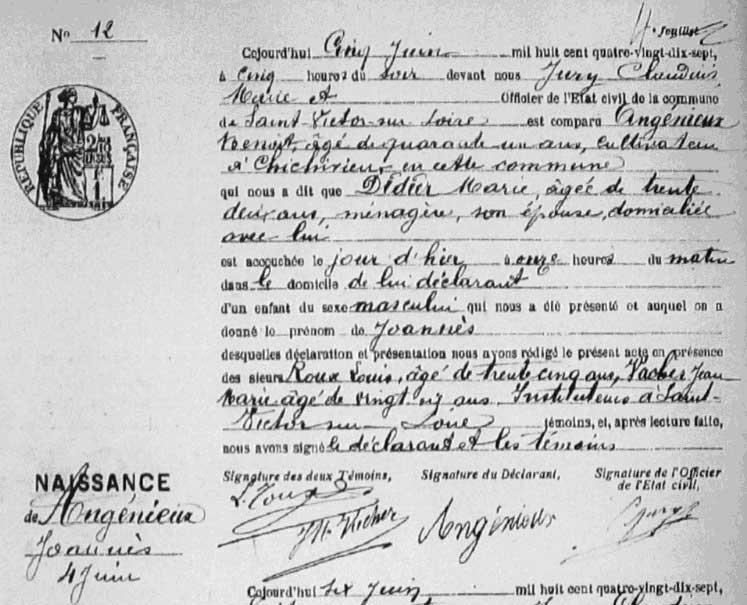 4e feuillet
No 12
Cejourd'hui Cinq Juin mil huit cent quatre-vingt-dix-sept,
à cinq heures du soir devant nous Jury Claudius
Marie et Officier de l'Etat civil de la commune
de Saint-Victor-sur Loire est comparu Angénieux
Benoit, âgé de quarante un ans, cultivateur
à Chichivieux en cette commune
qui nous a dit que Didier Marie, âgée de trente
deux ans, ménagère, son épouse, domiciliée
avec lui
est accouchée le jour d'hier, à onze heures du matin
dans le domicile de lui déclarant
d'un enfant du sexe masculin qui nous a été présenté et auquel on a
donné le prénom de Joannès
desquelles déclaration et présentation nous avons rédigé le présent acte en présence
des sieurs Roux Louis, âgé de trente cinq ans, Vacher Jean
Marie âgé de vingt six ans, Instituteurs à Saint-
Victor sur Loire témoins, et, après lecture faite,
nous avons signé le déclarant et les témoins
Signature des deux Témoins, Signature du Déclarant, Signature de l'Officier
de l'Etat civil,
L. Roux
JM Vacher Angénieux C Jury
RÉPUBLIQUE FRANÇAISE
NAISSANCE
de Angénieux
Joannès
4 Juin
Cejourd'hui six Juin mil huit cent quatre-vingt-dix-sept,